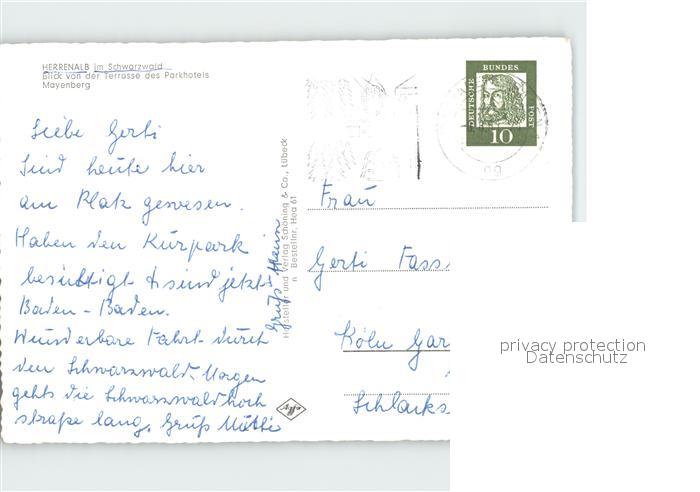 HERRENALB im Schwarzwald
Blick von der Terrasse des Parkhotels
Mayenberg
Liebe Gerti
Sind heute hier
am Platz gewesen.
Haben den Kurpark
besichtigt & sind jetzt
Baden-Baden.
Wunderbare Fahrt durch
den Schwarzwald. Morgen
gehts die Schwarzwaldhoch
straße lang. Gruß Mutti
Gruß
Hersteller und Verlag Schöning & Co., Lübeck
Bestellnr. Hea 61
DEUTSCHE
BUNDES
POST
10
Frau
Gerti Fass
Köln Gar
Schlacks
privacy protection
Datenschutz